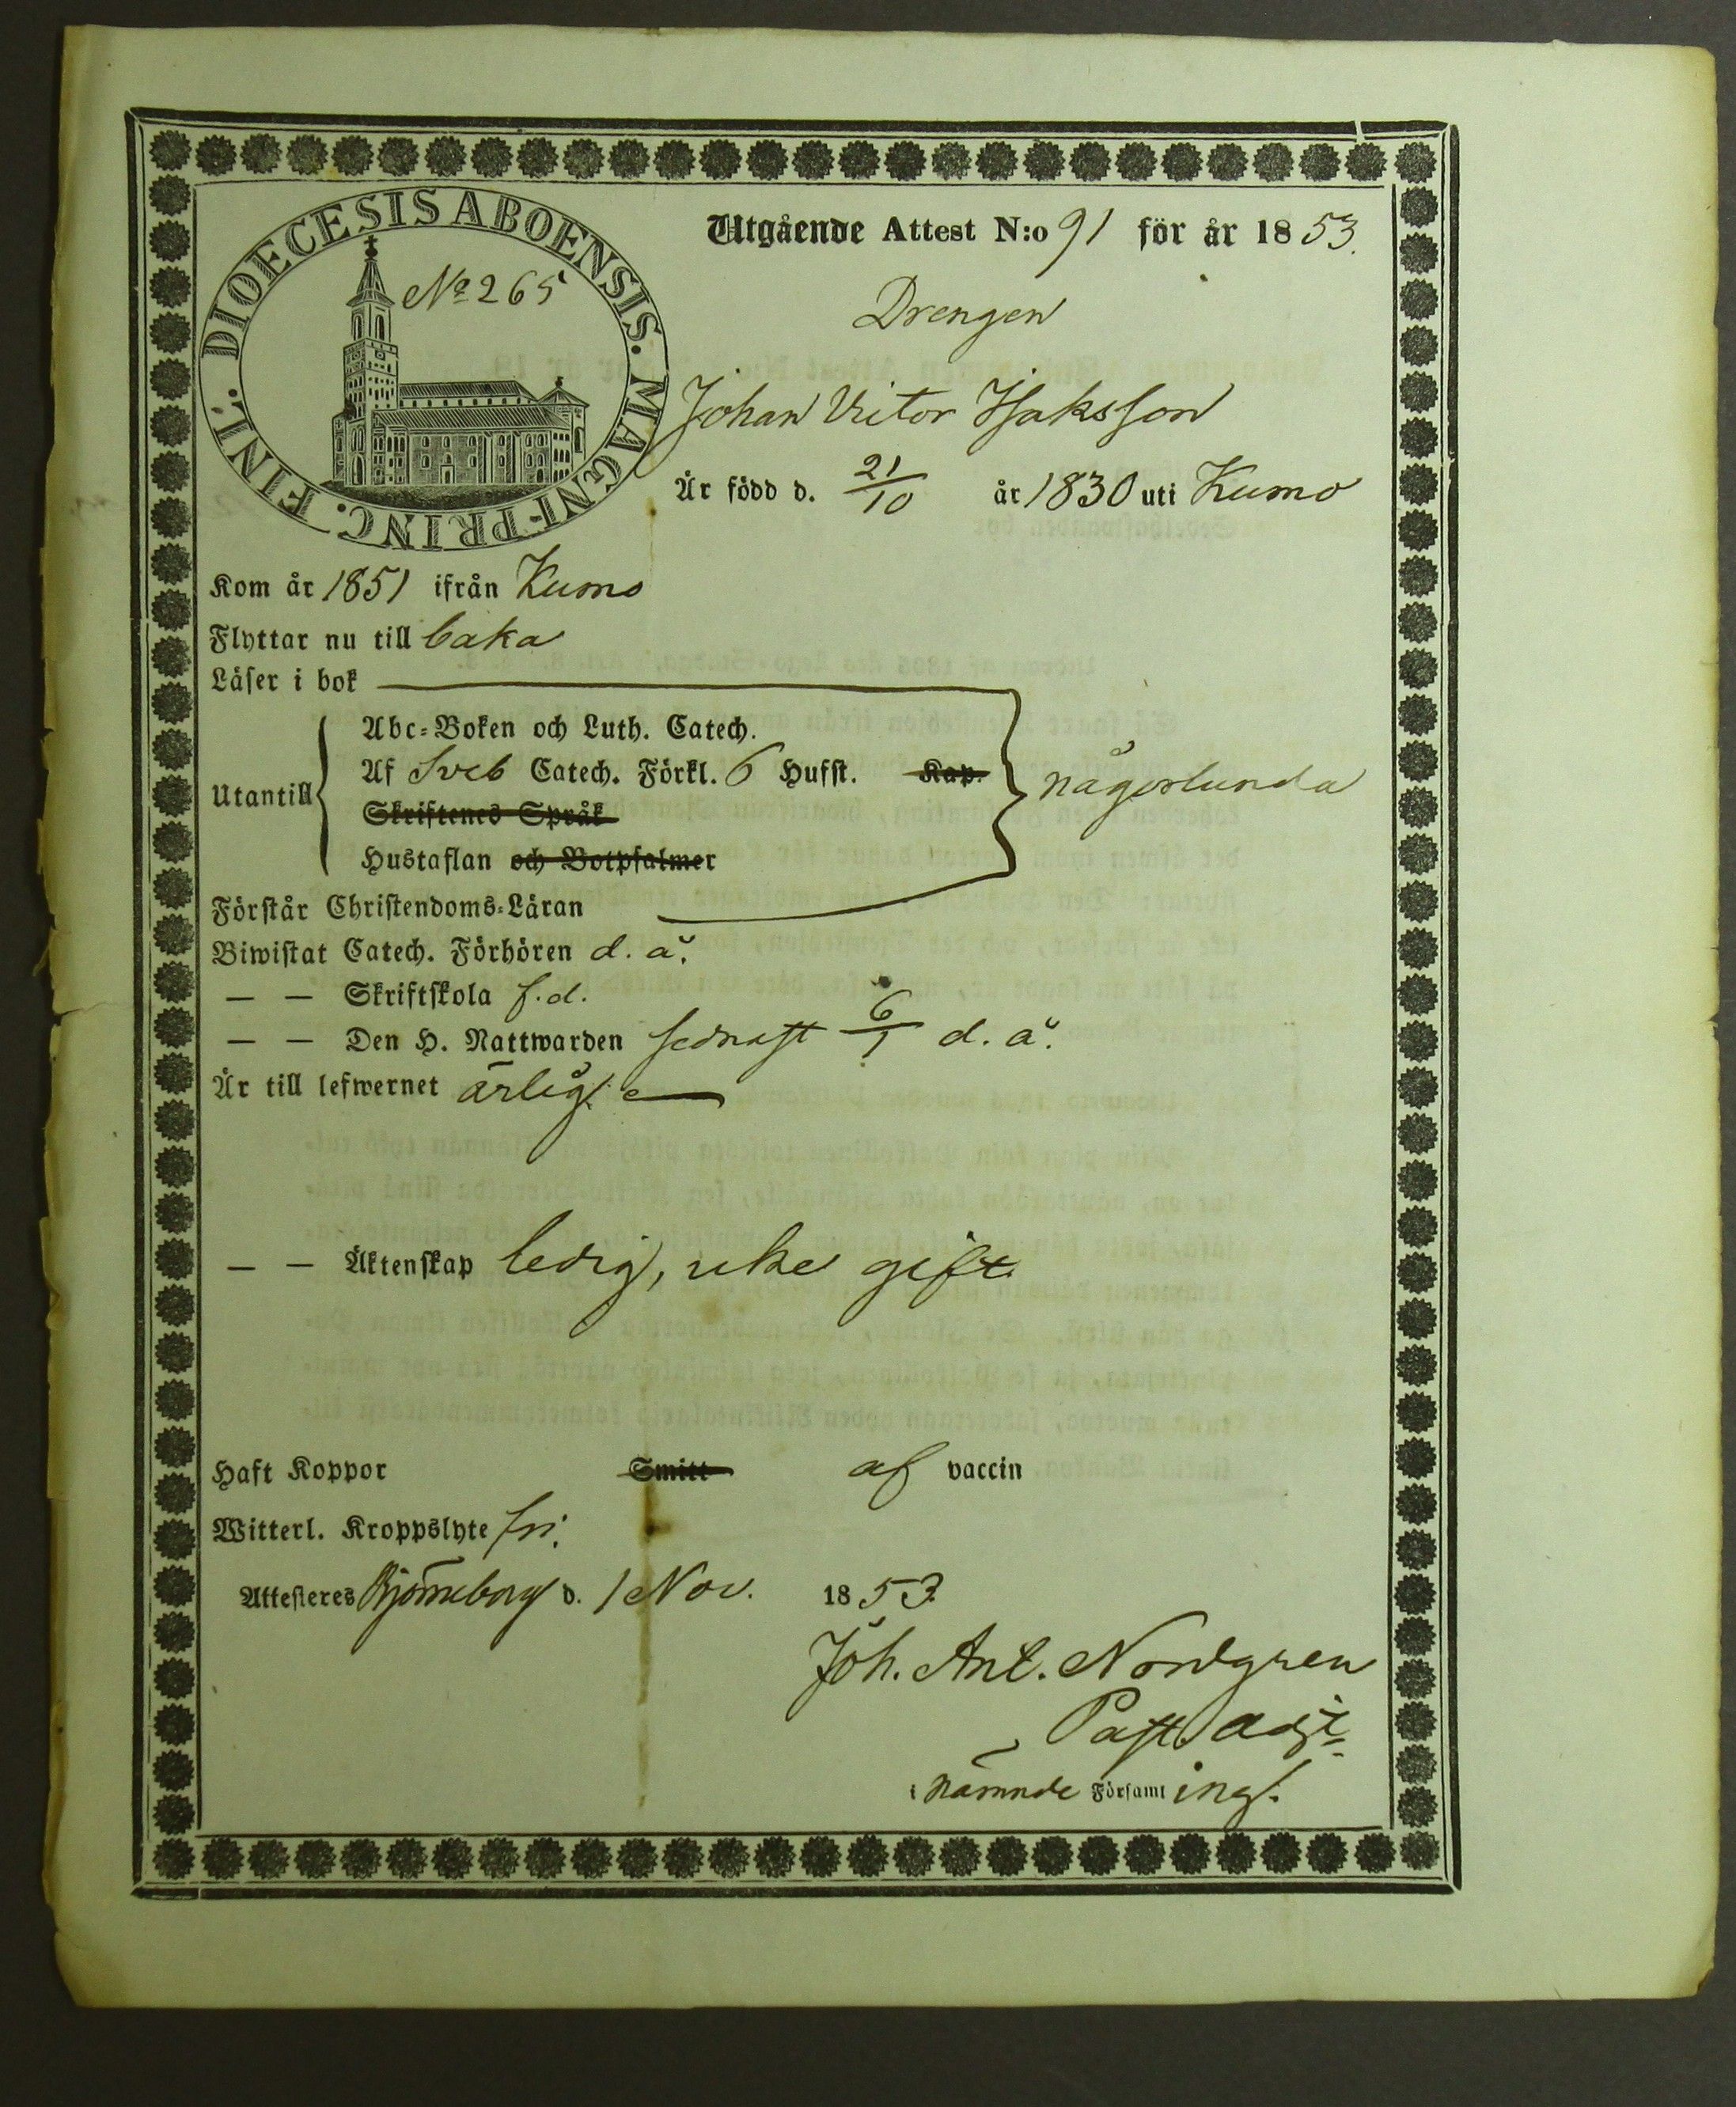 DIOECESIS ABOENSIS. MAGNI-PRINC. FINL.
No 265
Utgående Attest N:o 91 för år 1853.
Drengen
Johan Victor Isaksson
Är född d. 21/10 år 1830 uti Kumo
Kom år 1851 ifrån Kumo
Flyttar nu till baka
Läser i bok
Abc-Boken och Luth. Catech.
Utantill Af Sveb Catech. Förkl. 6 Hufst. Kap. någorlunda
Skriftenes Språk
Hustaflan och Botpsalmer
Förstår Christendoms-Läran
Biwistat Catech. Förhören d. å.
— — Skriftskola f.d.
— — Den H. Nattwarden sednast d. å.
Är till lefwernet ärlig
— — Äktenskap ledig, icke gift
Haft Koppor Smitt af vaccin
Witterl. Kroppslyte fri.
Attesteres Björneborg d. 1 Nov. 1853.
Joh. Ant. Nordgren
Past. adj:
i nämnde Församl ing.